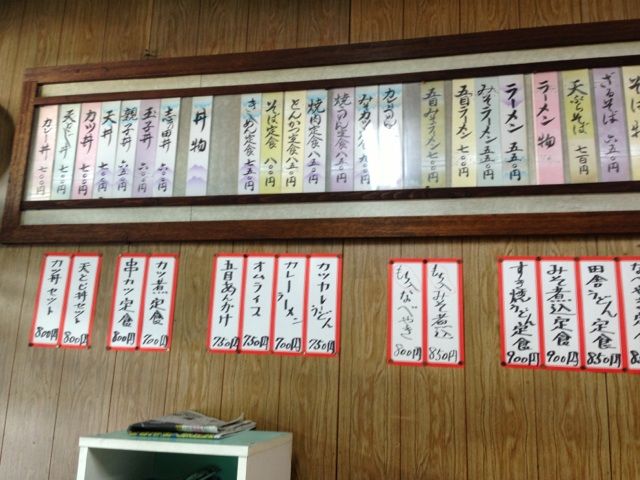 ざるそば 六五〇円
天ぷらそば 七百円
ラーメン物
ラーメン 五五〇円
みそラーメン 五五〇円
五目ラーメン 七〇〇円
五目みそラーメン 七〇〇円
焼うどん定食 八五〇円
焼肉定食 八五〇円
とんかつ定食 八五〇円
そば定食 八五〇円
丼物
志の田丼 六〇〇円
玉子丼 六〇〇円
親子丼 六五〇円
天丼 七〇〇円
カツ丼 七〇〇円
天とじ丼 七〇〇円
カレー丼 七〇〇円
田舎うどん定食 850円
みそ煮込定食 900円
すき焼うどん定食 900円
もち入みそ煮込 850円
もち入なべやき 800円
カツカレーライス 750円
カレーラーメン 700円
オムライス 750円
五目あんかけ 750円
カツ煮定食 900円
串カツ定食 800円
天とじ丼セット 800円
カツ丼セット 800円